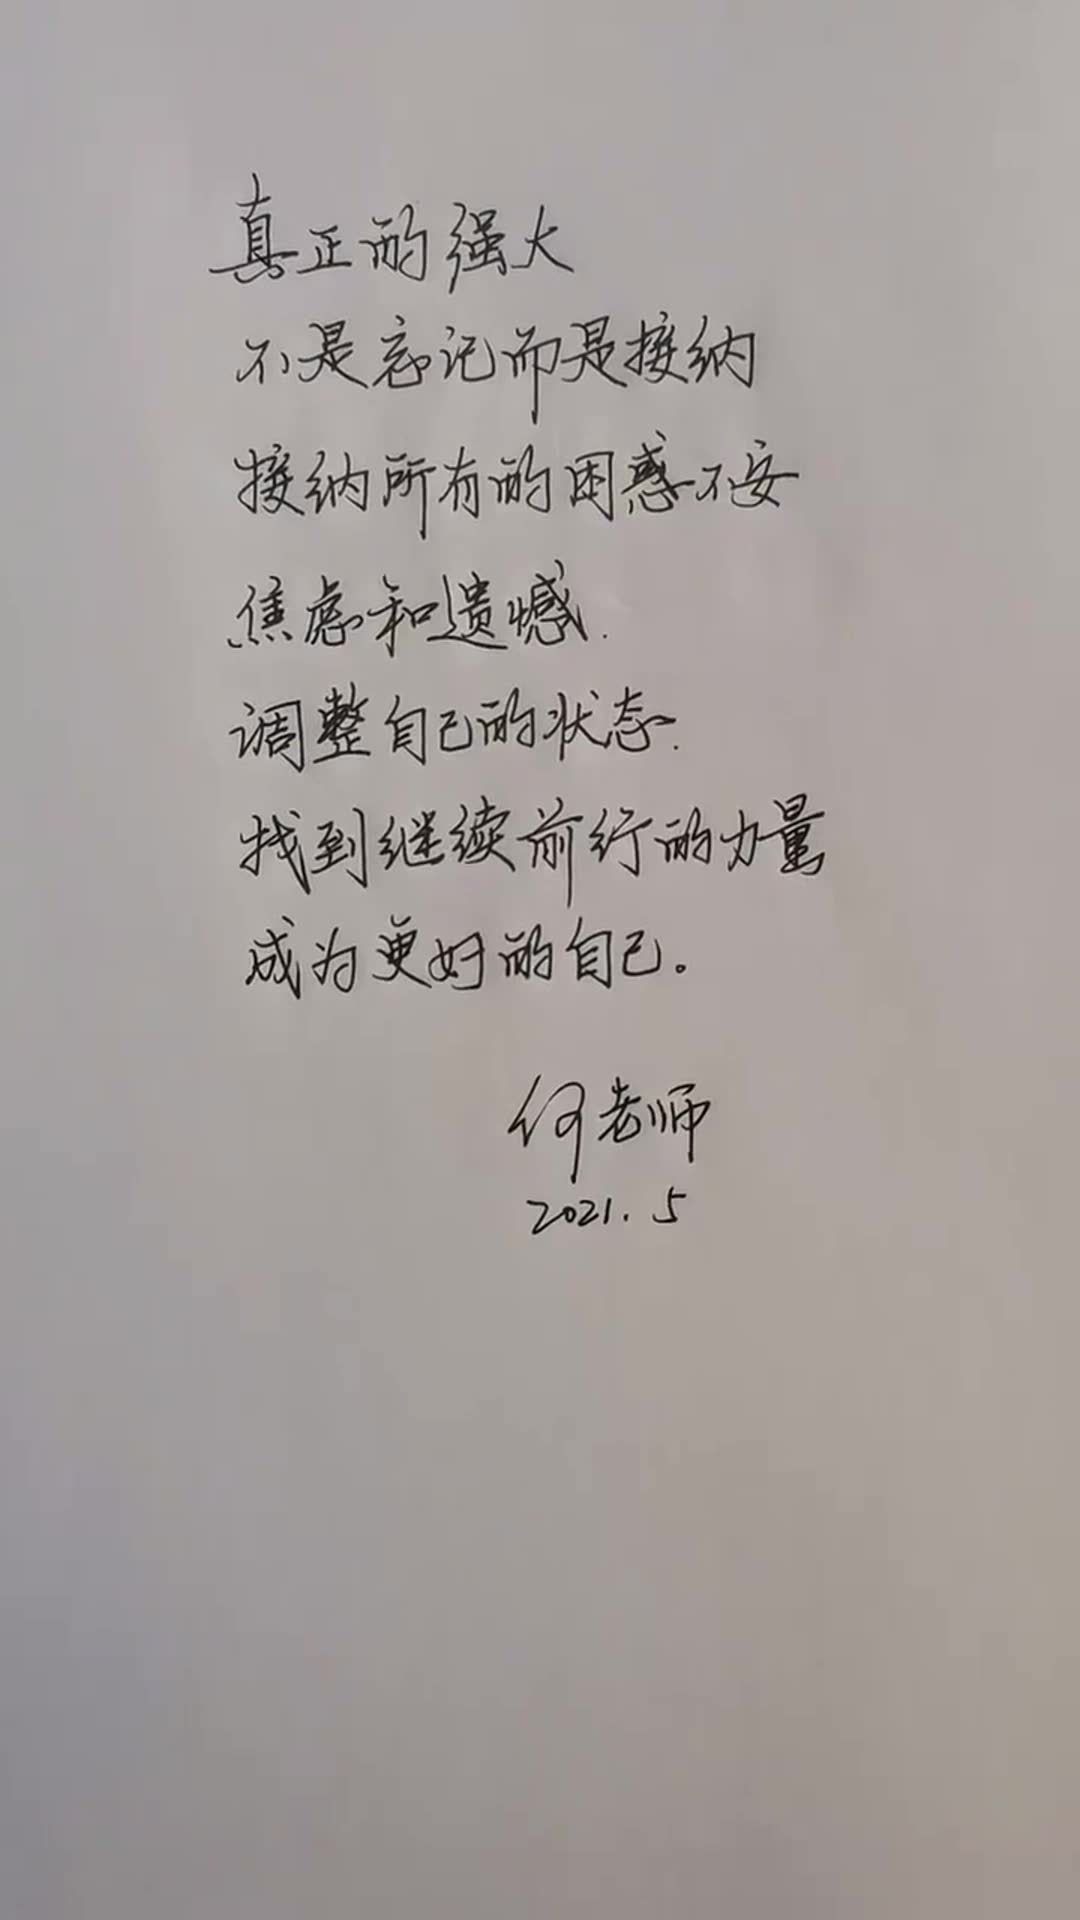 真正的强大
不是忘记而是接纳
接纳所有的困惑不安
焦虑和遗憾.
调整自己的状态.
找到继续前行的力量
成为更好的自己。
何老师
2021.5